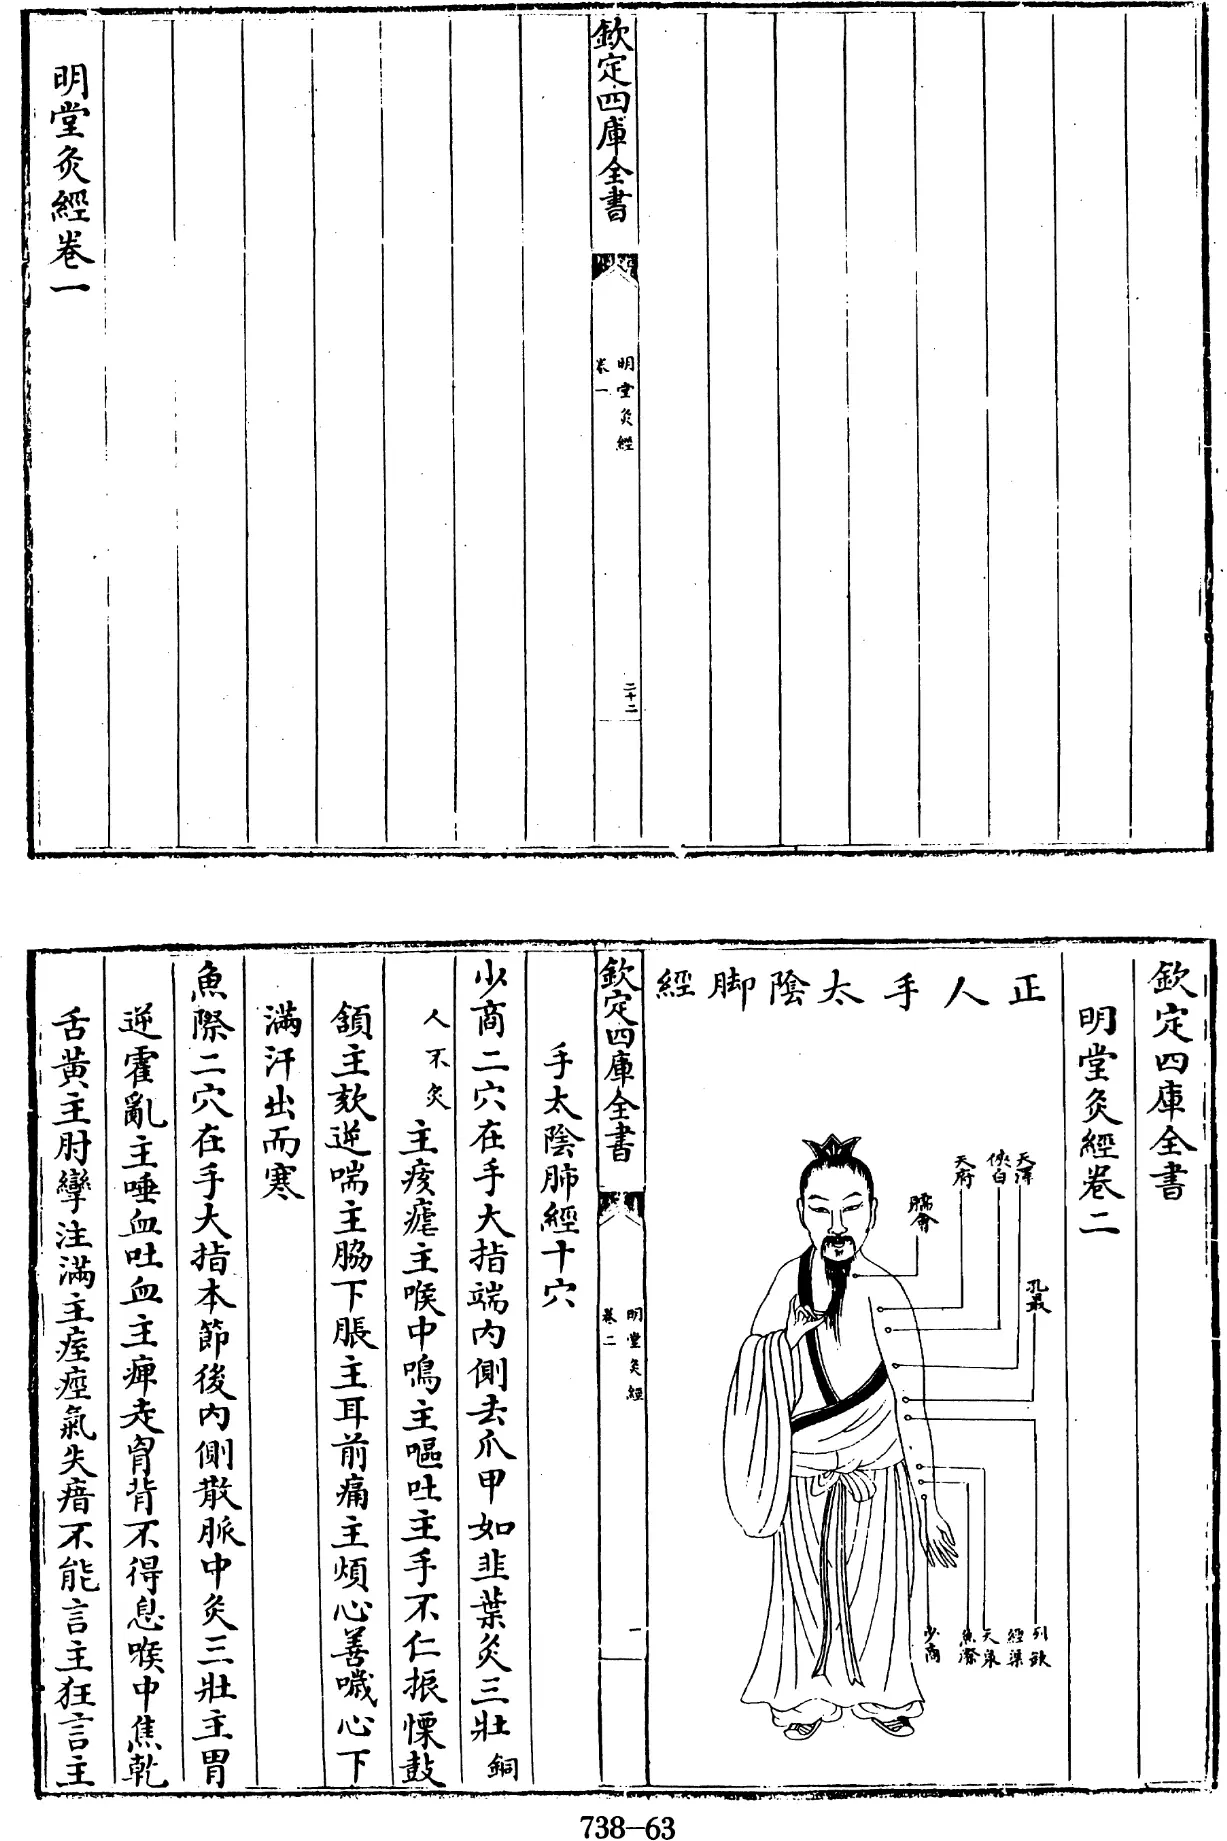 欽定四庫全書
明堂灸經
卷一
二十二
明堂灸經卷一
欽定四庫全書
明堂灸經卷二
正人手太陰脚經
天澤
俠白
天府
臑會
孔最
列缺
經渠
天泉
魚際
少商
欽定四庫全書
明堂灸經
卷二
一
手太陰肺經十穴
少商二穴在手大指端内側去爪甲如韭葉灸三壯銅
人不灸主痎瘧主喉中鳴主嘔吐主手不仁振慄鼓
頷主欬逆喘主脇下脹主耳前痛主煩心善噦心下
滿汗出而寒
魚際二穴在手大指本節後内側散脈中灸三壯主胃
逆霍亂主唾血吐血主痺走胷背不得息喉中焦乾
舌黄主肘攣注滿主痓痙氣失瘖不能言主狂言主
738-63